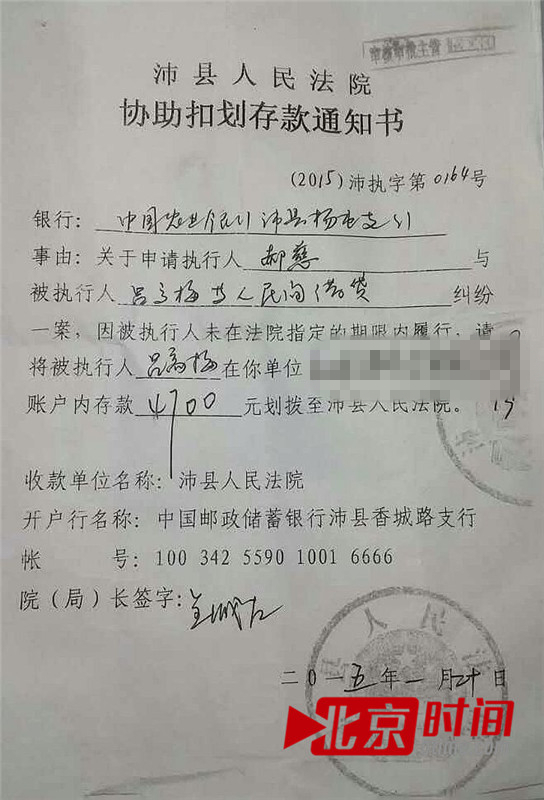 沛县人民法院
协助扣划存款通知书
(2015)沛执字第0164号
银行：中国农业银行沛县杨屯支行
事由：关于申请执行人郝慈与
被执行人吕高梅等人民间借贷纠纷
一案，因被执行人未在法院指定的期限内履行，请
将被执行人吕高梅在你单位
账户内存款4700元划拨至沛县人民法院。
收款单位名称：沛县人民法院
开户行名称：中国邮政储蓄银行沛县香城路支行
帐号：100 342 5590 1001 6666
院（局）长签字：
县人民法
二〇一五年一月二十日
北京时间